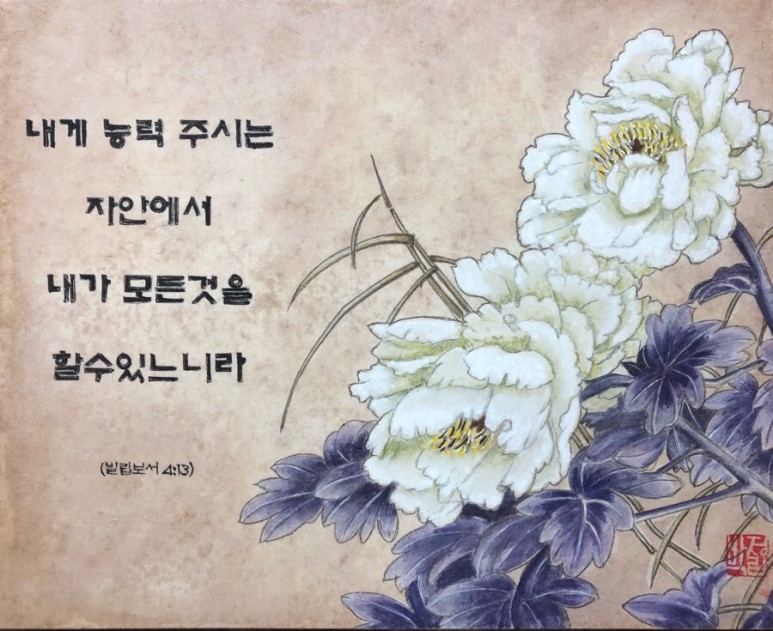 내게 능력 주시는
자안에서
내가 모든것을
할수있느니라
(빌립보서 4:13)